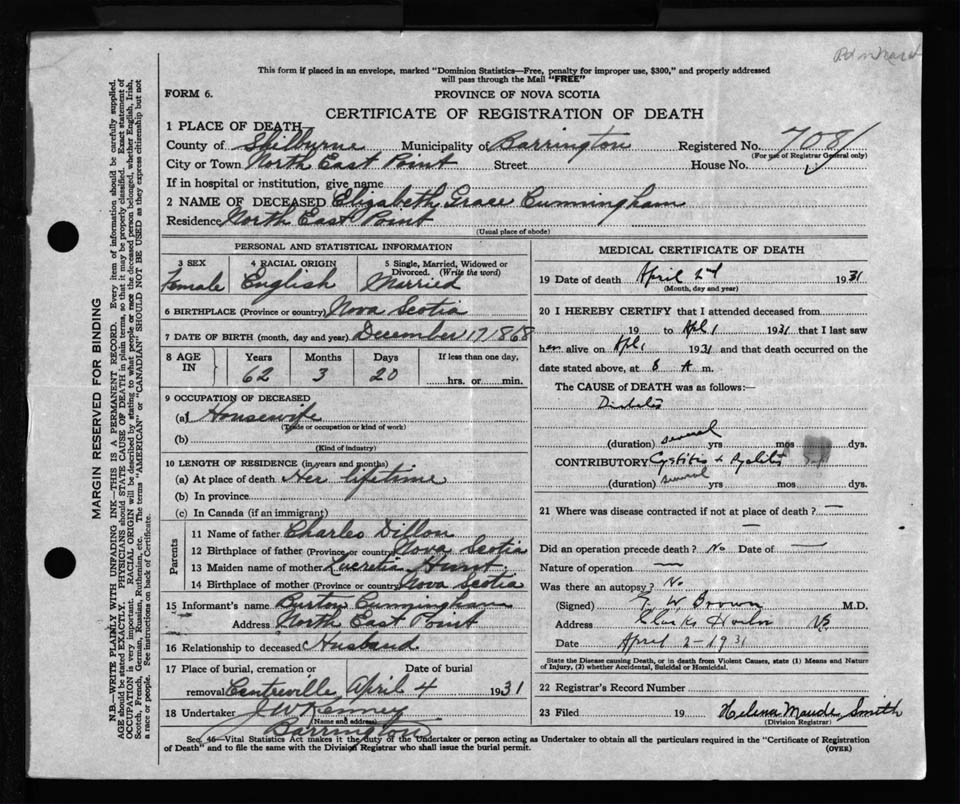 This form if placed in an envelope, marked "Dominion Statistics—Free, penalty for improper use, $300," and properly addressed
will pass through the Mail "FREE"
FORM 6.
PROVINCE OF NOVA SCOTIA
CERTIFICATE OF REGISTRATION OF DEATH
1 PLACE OF DEATH
County of Shilburne Municipality of Barrington Registered No. 7081
(For use of Registrar General only)
City or Town North East Point Street House No.
If in hospital or institution, give name
2 NAME OF DECEASED Elizabeth Grace Cunningham
Residence North East Point
(Usual place of abode)
PERSONAL AND STATISTICAL INFORMATION
3 SEX 4 RACIAL ORIGIN 5 Single, Married, Widowed or
Divorced. (Write the word)
Female English Married
6 BIRTHPLACE (Province or country) Nova Scotia
7 DATE OF BIRTH (month, day and year) December 17 1868
8 AGE IN Years Months Days If less than one day,
62 3 20 hrs. or min.
9 OCCUPATION OF DECEASED
(a) Housewife
(Trade or occupation or kind of work)
(b)
(Kind of industry)
10 LENGTH OF RESIDENCE (in years and months)
(a) At place of death Her lifetime
(b) In province
(c) In Canada (if an immigrant)
Parents
11 Name of father Charles Dillon
12 Birthplace of father (Province or country) Nova Scotia
13 Maiden name of mother Lucretia Hunt
14 Birthplace of mother (Province or country) Nova Scotia
15 Informant's name Burton Cunningham
Address North East Point
16 Relationship to deceased Husband
17 Place of burial, cremation or Date of burial
removal Centreville April 4 1931
18 Undertaker J W Kenney
(Name and address)
Barrington
MEDICAL CERTIFICATE OF DEATH
19 Date of death April 2d 1931
(Month, day and year)
20 I HEREBY CERTIFY that I attended deceased from
19 to Apl 1 1931 that I last saw
her alive on Apl 1 1931 and that death occurred on the
date stated above, at A m.
The CAUSE of DEATH was as follows:—
Diabetes
(duration) several yrs mos dys.
CONTRIBUTORY Cystitis + Pyelitis
(duration) several yrs mos dys.
21 Where was disease contracted if not at place of death? —
—
Did an operation precede death? No Date of —
Nature of operation —
Was there an autopsy? No
(Signed) W. Brown M.D.
Address Clarks Harbor NS
Date April 2-1931
State the Disease causing Death, or in death from Violent Causes, state (1) Means and Nature
of Injury, (2) whether Accidental, Suicidal or Homicidal.
22 Registrar's Record Number
23 Filed 19 Helena Maude Smith
(Division Registrar)
Sec. 46—Vital Statistics Act makes it the duty of the Undertaker or person acting as Undertaker to obtain all the particulars required in the "Certificate of Registration
of Death" and to file the same with the Division Registrar who shall issue the burial permit.
(OVER)
MARGIN RESERVED FOR BINDING
N.B.—WRITE PLAINLY WITH UNFADING INK—THIS IS A PERMANENT RECORD. Every item of information should be carefully supplied.
AGE should be stated EXACTLY. PHYSICIANS should STATE CAUSE OF DEATH in plain terms, so that it may be properly classified. Exact statement of
OCCUPATION is very important. RACIAL ORIGIN will be described by stating to what people or race the deceased person belonged, whether English, Irish,
Scotch, French, German, Russian, Ruthenian, etc. The terms "AMERICAN" or "CANADIAN" SHOULD NOT BE USED as they express citizenship but not
a race or people. See instructions on back of Certificate.